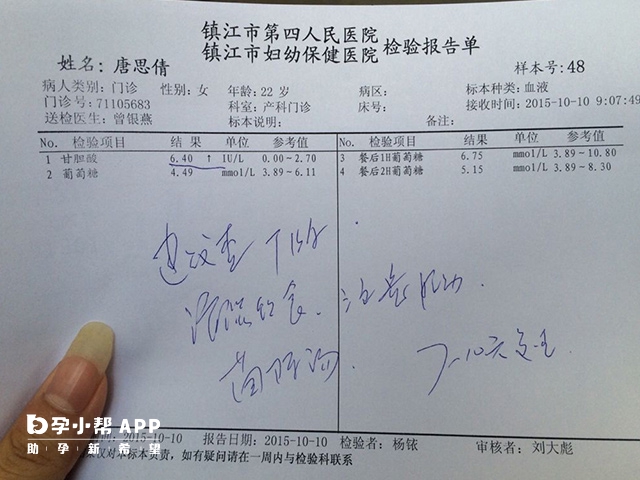 镇江市第四人民医院
镇江市妇幼保健医院 检验报告单
姓名: 唐思倩 样本号: 48
病人类别: 门诊 性别: 女 年龄: 22 岁 病区: 标本种类: 血液
门诊号: 71105683 科室: 产科门诊 床号: 接收时间: 2015-10-10 9:07:49
送检医生: 曾银燕 标本说明: 备注:
No. 检验项目 结果 单位 参考值 No. 检验项目 结果 单位 参考值
1 甘胆酸 6.40 ↑ IU/L 0.00~2.70 3 餐后1H葡萄糖 6.75 mmol/L 3.89~10.80
2 葡萄糖 4.49 mmol/L 3.89~6.11 4 餐后2H葡萄糖 5.15 mmol/L 3.89~8.30
建议查
清淡饮食. 注意胎动.
茵陈汤 7-10天复查
孕小帮 APP
助孕新希望
2015-10-10 报告日期: 2015-10-10 检验者: 杨铱 审核者: 刘大彪
仅对本标本负责, 如有疑问请在一周内与检验科联系